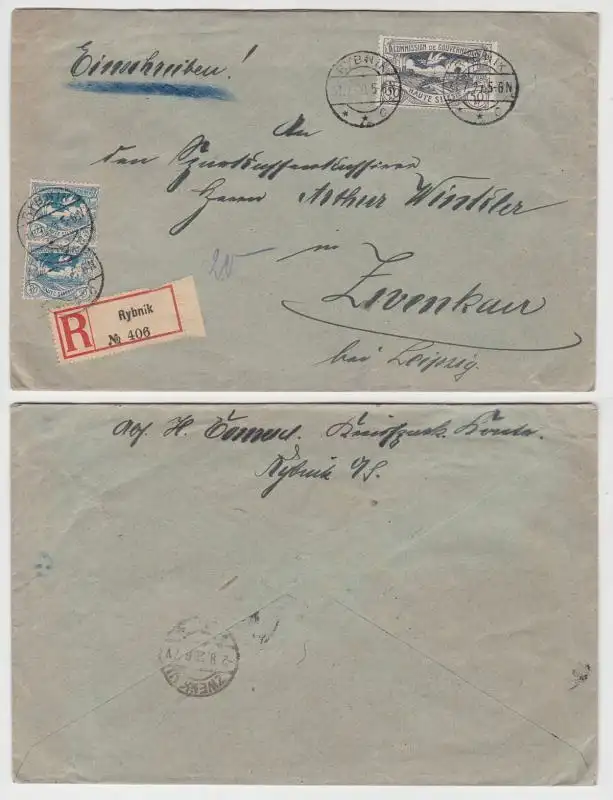 Einschreiben!
COMMISSION DE GOUVERNEMENT
HAUTE SILÉSIE
RYBNIK
5-6N
c
An
den Sparkassenkassierer
Herrn Arthur Winkler
in
Zwenkau
bei Leipzig.
20
R
Rybnik
№ 406
Abs. H.
Rybnik O/S.
ZWENKAU